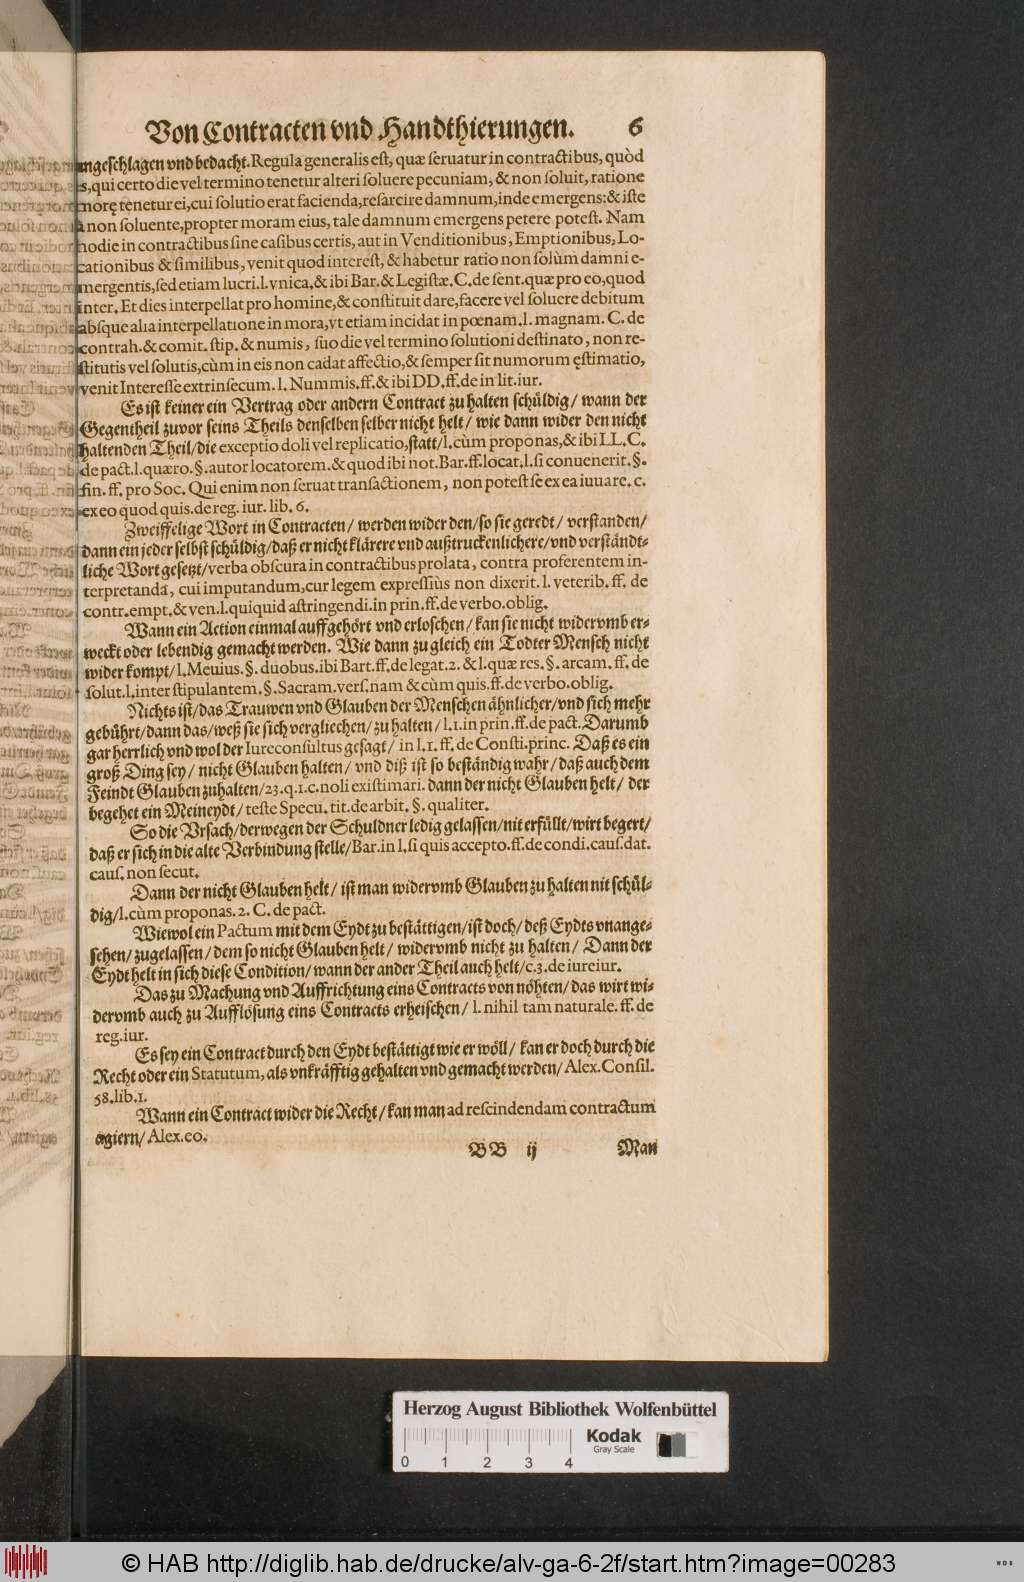 Von Contracten vnd Handthierungen. 6
ngeschlagen vnd bedacht. Regula generalis est, quæ seruatur in contractibus, quòd
s, qui certo die vel termino tenetur alteri soluere pecuniam, & non soluit, ratione
morę tenetur ei, cui solutio erat facienda, resarcire damnum, inde emergens: & iste
à non soluente, propter moram eius, tale damnum emergens petere potest. Nam
hodie in contractibus sine casibus certis, aut in Venditionibus, Emptionibus, Lo-
cationibus & similibus, venit quod interest, & habetur ratio non solùm damni e-
mergentis, sed etiam lucri. l. vnica, & ibi Bar. & Legistæ. C. de sent. quæ pro eo, quod
inter. Et dies interpellat pro homine, & constituit dare, facere vel soluere debitum
absque alia interpellatione in mora, vt etiam incidat in pœnam. l. magnam. C. de
contrah. & comit. stip. & numis, suo die vel termino solutioni destinato, non re-
stitutis vel solutis, cùm in eis non cadat affectio, & semper sit numorum ęstimatio,
venit Interesse extrinsecum. l. Nummis. ff. & ibi DD. ff. de in lit. iur.
Es ist keiner ein Vertrag oder andern Contract zu halten schüldig / wann der
Gegentheil zuvor seins Theils denselben selber nicht helt / wie dann wider den nicht
haltenden Theil / die exceptio doli vel replicatio, statt / l. cùm proponas, & ibi LL. C.
de pact. l. quæro. §. autor locatorem. & quod ibi not. Bar. ff. locat. l. si conuenerit. §.
fin. ff. pro Soc. Qui enim non seruat transactionem, non potest se ex ea iuuare. c.
ex eo quod quis. de reg. iur. lib. 6.
Zweiffelige Wort in Contracten / werden wider den / so sie geredt / verstanden /
dann ein jeder selbst schüldig / daß er nicht klärere vnd außtruckenlichere / vnd verständt-
liche Wort gesetzt / verba obscura in contractibus prolata, contra proferentem in-
terpretanda, cui imputandum, cur legem expressiùs non dixerit. l. veterib. ff. de
contr. empt. & ven. l. quiquid astringendi. in prin. ff. de verbo. oblig.
Wann ein Action einmal auffgehört vnd erloschen / kan sie nicht widervmb er-
weckt oder lebendig gemacht werden. Wie dann zu gleich ein Todter Mensch nicht
wider kompt / l. Meuius. §. duobus. ibi Bart. ff. de legat. 2. & l. quæ res. §. arcam. ff. de
solut. l. inter stipulantem. §. Sacram. vers. nam & cùm quis. ff. de verbo. oblig.
Nichts ist / das Trauwen vnd Glauben der Menschen ähnlicher / vnd sich mehr
gebührt / dann das / weß sie sich vergliechen / zu halten / l. 1. in prin. ff. de pact. Darumb
gar herrlich vnd wol der Iureconsultus gesagt / in l. 1. ff. de Consti. princ. Daß es ein
groß Ding sey / nicht Glauben halten / vnd diß ist so beständig wahr / daß auch dem
Feindt Glauben zuhalten / 23. q. 1. c. noli existimari. dann der nicht Glauben helt / der
begehet ein Meineydt / teste Specu. tit. de arbit. §. qualiter.
So die Vrsach / derwegen der Schuldner ledig gelassen / nit erfüllt / wirt begert /
daß er sich in die alte Verbindung stelle / Bar. in l. si quis accepto. ff. de condi. caus. dat.
caus. non secut.
Dann der nicht Glauben helt / ist man widervmb Glauben zu halten nit schül-
dig / l. cùm proponas. 2. C. de pact.
Wiewol ein Pactum mit dem Eydt zu bestättigen / ist doch / deß Eydts vnange-
sehen / zugelassen / dem so nicht Glauben helt / widervmb nicht zu halten / Dann der
Eydt helt in sich diese Condition / wann der ander Theil auch helt / c. 3. de iureiur.
Das zu Machung vnd Auffrichtung eins Contracts von nöhten / das wirt wi-
dervmb auch zu Aufflösung eins Contracts erheischen / l. nihil tam naturale. ff. de
reg. iur.
Es sey ein Contract durch den Eydt bestättigt wie er wöll / kan er doch durch die
Recht oder ein Statutum, als vnkräfftig gehalten vnd gemacht werden / Alex. Consil.
58. lib. 1.
Wann ein Contract wider die Recht / kan man ad rescindendam contractum
agiern / Alex. eo.
BB ij Man
Herzog August Bibliothek Wolfenbüttel
0 1 2 3 4
Kodak
Gray Scale
© HAB http://diglib.hab.de/drucke/alv-ga-6-2f/start.htm?image=00283